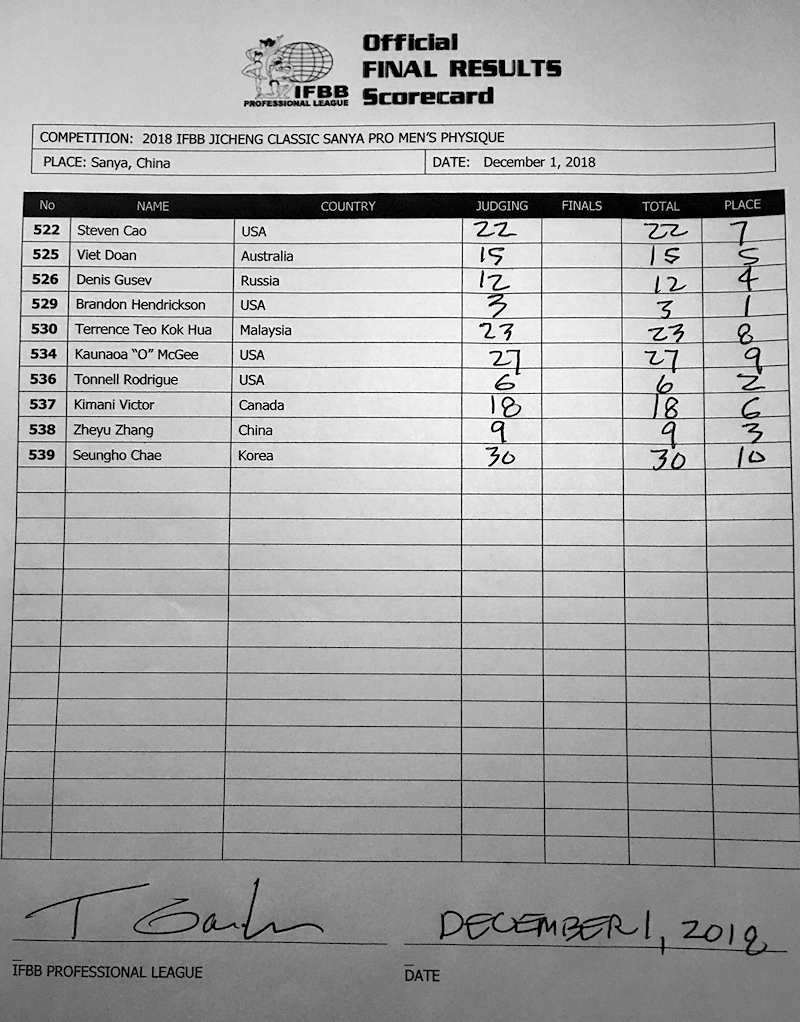 Official
FINAL RESULTS
Scorecard
IFBB
PROFESSIONAL LEAGUE
COMPETITION: 2018 IFBB JICHENG CLASSIC SANYA PRO MEN'S PHYSIQUE
PLACE: Sanya, China DATE: December 1, 2018
No NAME COUNTRY JUDGING FINALS TOTAL PLACE
522 Steven Cao USA 22 22 7
525 Viet Doan Australia 15 15 5
526 Denis Gusev Russia 12 12 4
529 Brandon Hendrickson USA 3 3 1
530 Terrence Teo Kok Hua Malaysia 23 23 8
534 Kaunaoa "O" McGee USA 27 27 9
536 Tonnell Rodrigue USA 6 6 2
537 Kimani Victor Canada 18 18 6
538 Zheyu Zhang China 9 9 3
539 Seungho Chae Korea 30 30 10
T DECEMBER 1, 2018
IFBB PROFESSIONAL LEAGUE DATE